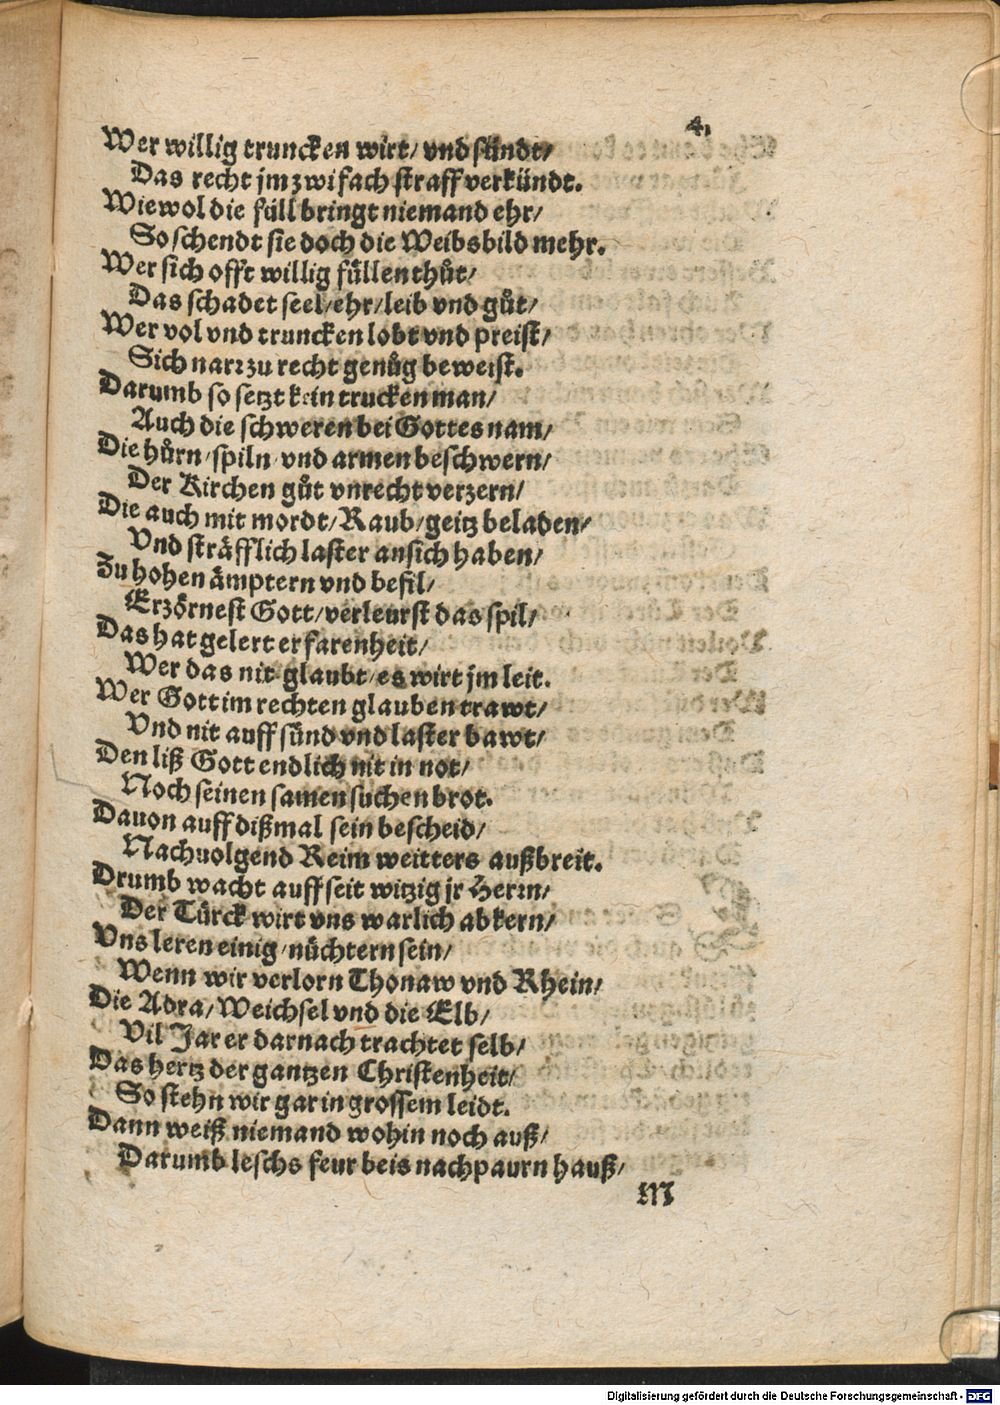 4.
Wer willig truncken wirt/ vnd sündt/
Das recht jm zwifach straff verkündt.
Wiewol die füll bringt niemand ehr/
So schendt sie doch die Weibsbild mehr.
Wer sich offt willig füllen thůt/
Das schadet seel/ ehr/ leib vnd gůt/
Wer vol vnd truncken lobt vnd preist/
Sich narr zu recht genůg beweist.
Darumb so setzt kein trucken man/
Auch die schweren bei Gottes nam/
Die hůrn/ spiln/ vnd armen beschwern/
Der Kirchen gůt vnrecht verzern/
Die auch mit mordt/ Raub/ geitz beladen/
Vnd sträfflich laster an sich haben/
Zu hohen ämptern vnd befil/
Erzörnest Gott/ verleurst das spil/
Das hat gelert erfarenheit/
Wer das nit glaubt/ es wirt jm leit.
Wer Gott im rechten glauben trawt/
Vnd nit auff sünd vnd laster bawt/
Den ließ Gott endlich nit in not/
Noch seinen samen suchen brot.
Dauon auff dißmal sein bescheid/
Nachuolgend Reim weitters außbreit.
Drumb wacht auff seit witzig jr Herrn/
Der Türck wirt vns warlich abkern/
Vns leren einig/ nüchtern sein/
Wenn wir verlorn Thonaw vnd Rhein/
Die Adra/ Weichsel vnd die Elb/
Vil Jar er darnach trachtet selb/
Das hertz der gantzen Christenheit/
So stehn wir gar in grossem leidt.
Dann weiß niemand wohin noch auß/
Darumb leschs feur beis nachpaurn hauß/
M
Digitalisierung gefördert durch die Deutsche Forschungsgemeinschaft - DFG